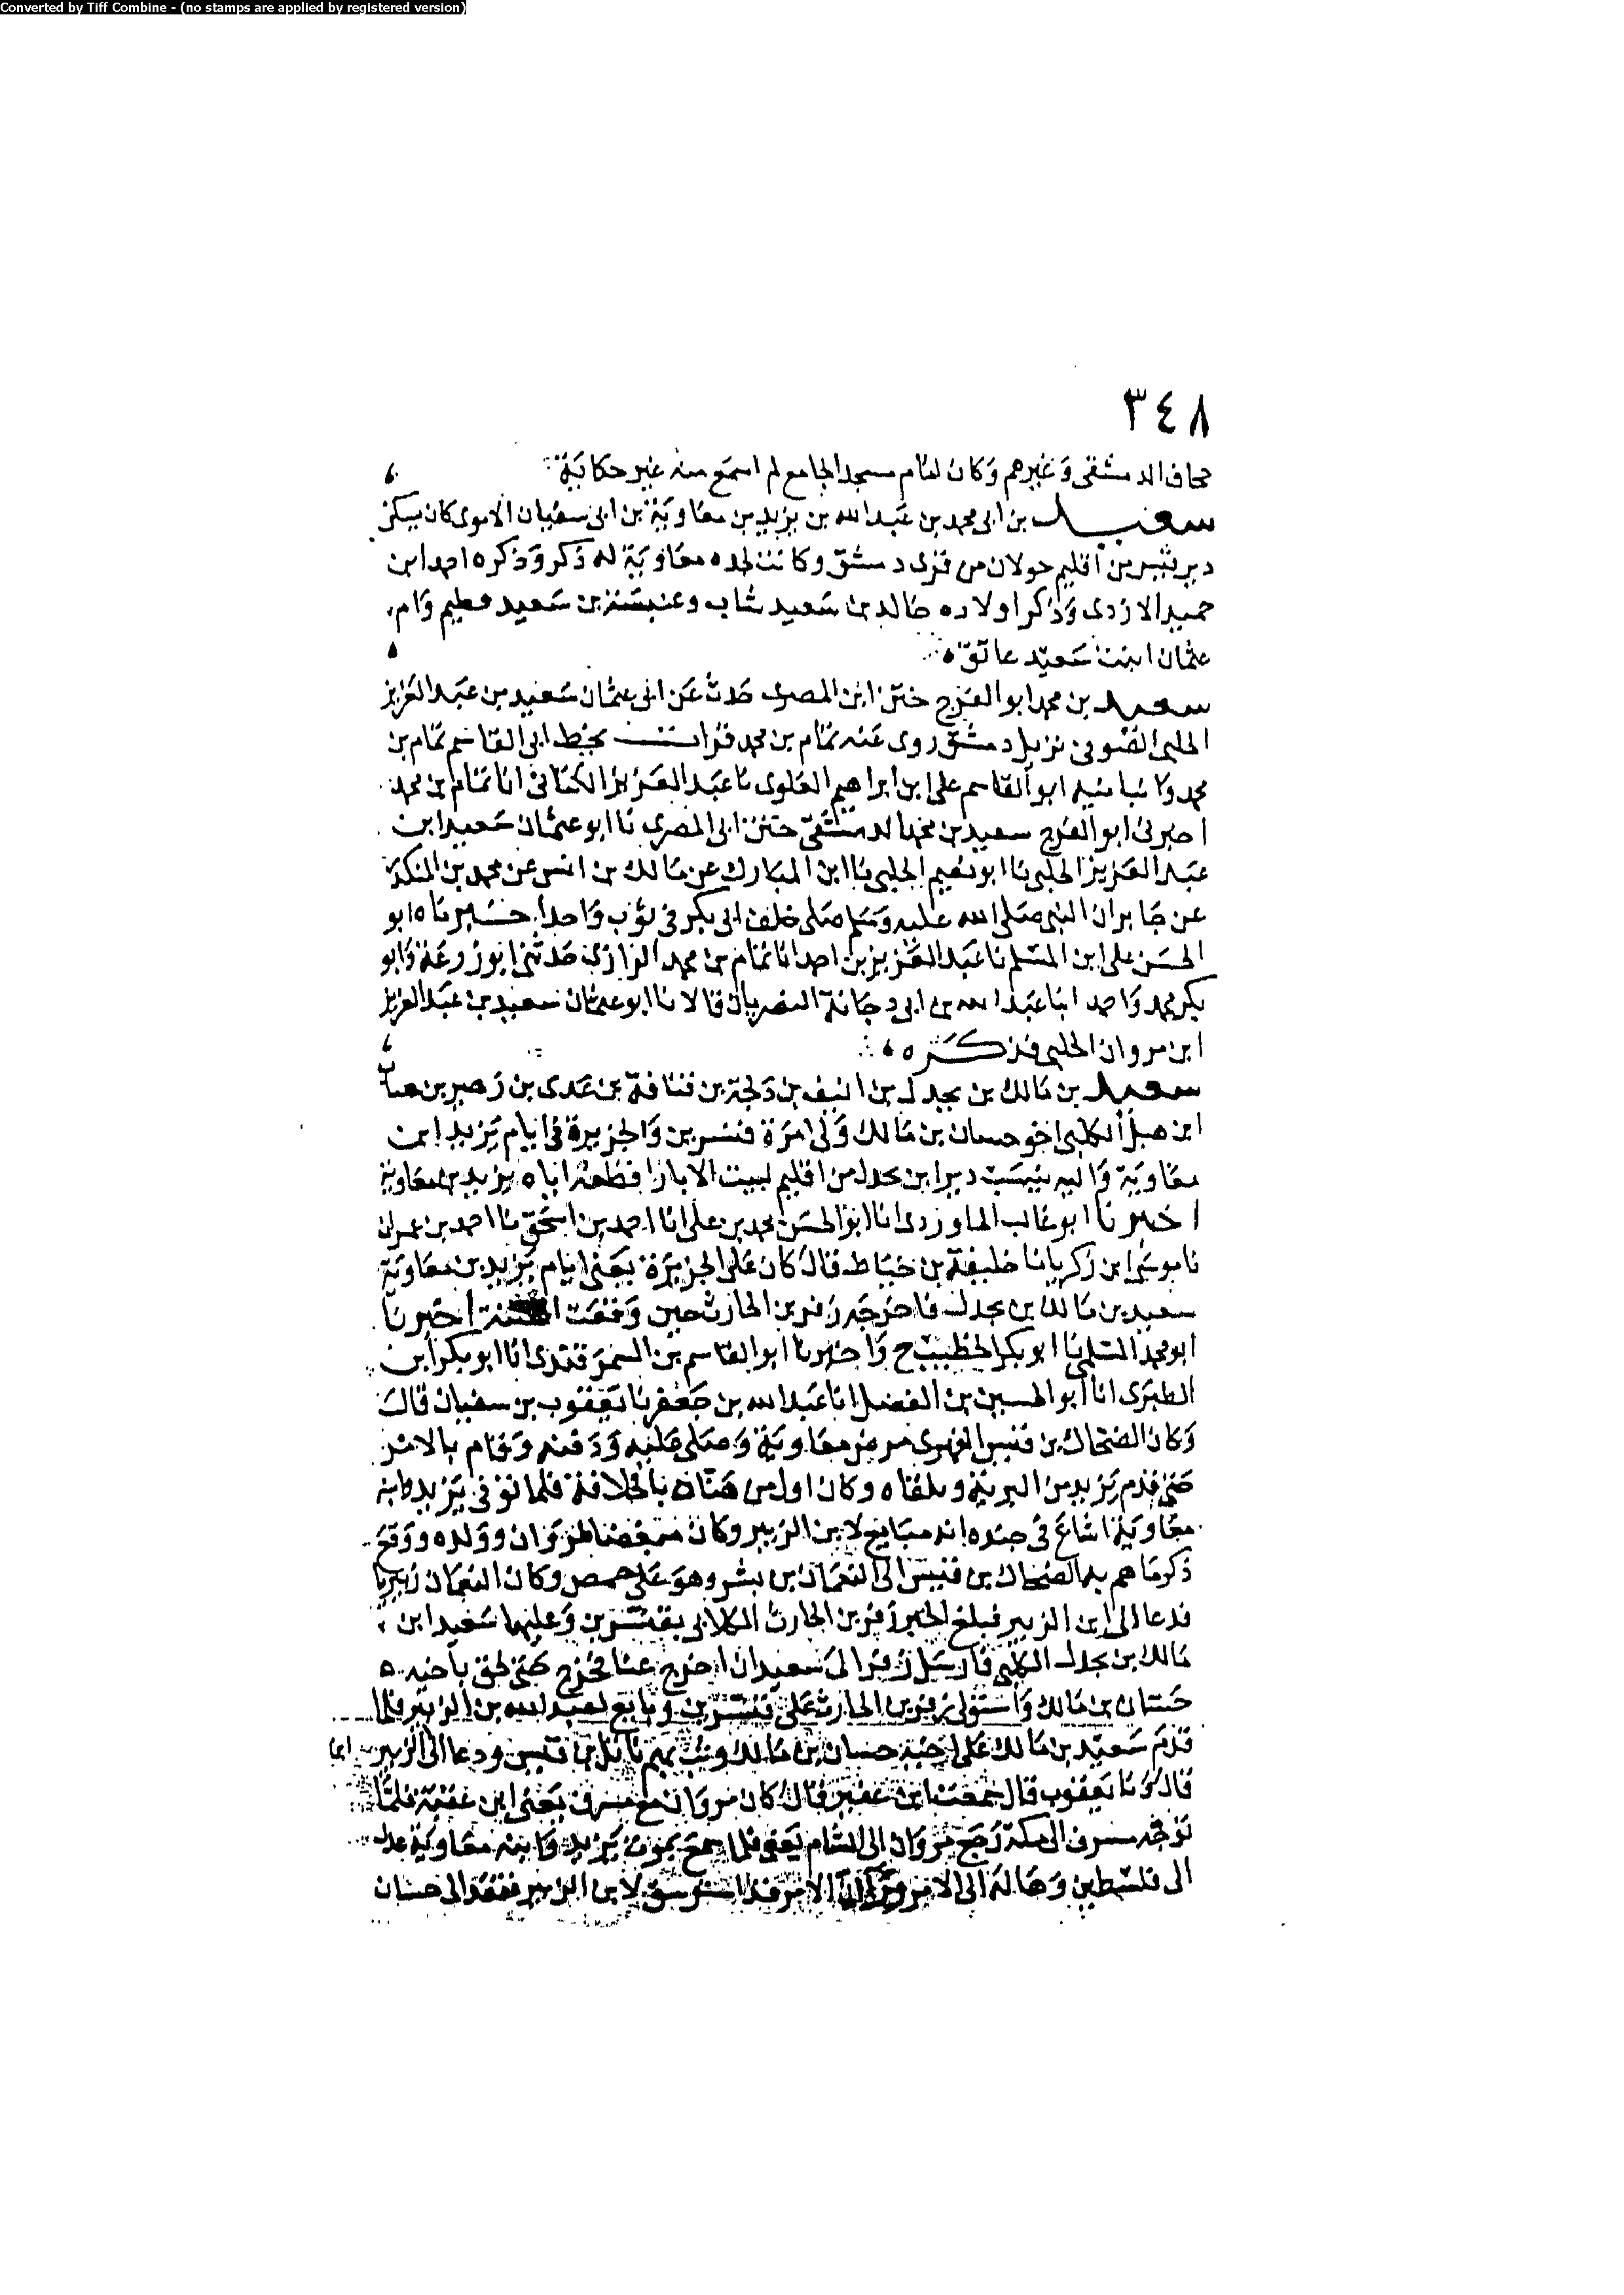 Converted by Tiff Combine - (no stamps are applied by registered version)
٣٤٨
الدمشقى وغيرهم وكان امام مسجد الجامع لم اسمع منه غير حكاية
سعيد بن ابى محمد بن عبد الله بن يزيد بن معاوية بن ابى سفيان الاموى كان يسكن
دير من اقليم جولان من قرى دمشق وكانت لجده معاوية له ذكر وذكره احمد ابن
حميد الازدى وذكر اولاده خالد بن سعيد شاب وعنبسة بن سعيد فطيم وام
عثمان ابنت سعيد عاتق ٥
سعيد بن محمد ابو الفرج ختن ابن المصرى حدث عن ابى عثمان سعيد بن عبد العزيز
الحلبى الصوفى نزيل دمشق روى عنه تمام بن محمد قرات بخط ابى القاسم تمام بن
محمد ابو القاسم على ابن ابراهيم العلوى نا عبد العزيز الكتانى انا تمام بن محمد
اخبرنى ابو الفرج سعيد بن محمد الدمشقى ختن ابى المصرى نا ابو عثمان سعيد ابن
عبد العزيز الحلبى نا ابو نعيم الحلبى نا ابن المبارك عن مالك بن انس عن محمد بن المنكدر
عن جابر ان النبى صلى الله عليه وسلم صلى خلف ابى بكر فى ثوب واحد اخبرناه ابو
الحسن على ابن المسلم نا عبد العزيز بن احمد انا تمام بن محمد الرازى حدثنى ابو زرعة وابو
بكر محمد واحمد ابنا عبد الله بن ابى دجانة النصريان قالا نا ابو عثمان سعيد بن عبد العزيز
ابن مروان الحلبى فذكره ٥
سعيد بن مالك بن بحدل بن انيف بن دلجة بن قنافة بن عدى بن زهير بن جناب
ابن هبل الكلبى اخو حسان بن مالك ولى امرة قنسرين والجزيرة فى ايام يزيد ابن
معاوية واليه ينسب دير ابن بحدل من اقليم لبيت الابار اقطعه اياه يزيد بن معاوية
اخبرنا ابو غالب الماوردى انا ابو الحسن محمد بن على انا احمد بن اسحق نا احمد بن عمران
نا موسى ابن زكريا نا خليفة بن خياط قال كان على الجزيرة يعنى ايام يزيد بن معاوية
سعيد بن مالك بن بحدل فاخرجه زفر بن الحارث حين وقعت الفتنة اخبرنا
ابو محمد السلمى نا ابو بكر الخطيب ح واخبرنا ابو القاسم بن السمرقندى انا ابو بكر ابن
الطبرى انا ابو الحسين بن الفضل انا عبد الله بن جعفر نا يعقوب بن سفيان قال
وكان الضحاك بن قيس الفهرى مرض معاوية وصلى عليه ودفنه وقام بالامر
حتى قدم يزيد من البرية وتلقاه وكان اول من هناه بالخلافة فلما توفى يزيد وابنه
معاوية اشاع فى جنده انه مبايع لابن الزبير وكان مبغضا لمروان وولده ووقع
ذكر ما هم به الضحاك بن قيس الى النعمان بن بشر وهو على حمص وكان النعمان زبيريا
فدعا الى ابن الزبير فبلغ الخبر زفر بن الحارث الكلابى بقنسرين وعليها سعيد ابن
مالك بن بحدل الكلبى فارسل زفر الى سعيد ان اخرج عنا فخرج حتى لحق باخيه ٥
حسان بن مالك واستولى زفر بن الحارث على قنسرين وبايع لعبد الله بن الزبير فلما
قدم سعيد بن مالك على اخيه حسان بن مالك وثب بهم ناتل بن قيس ودعا الى الزبير
قال ونا يعقوب قال سمعت ابن عفير قال كان مروان مع مسرف يعنى ابن عقبة فلما
توجه مسرف الى مكة رجع مروان الى الشام يعنى فلما سمع بموت يزيد وابنه معاوية عدل
الى فلسطين الامر قد استوسق لابن الزبير فقعد الى حسان